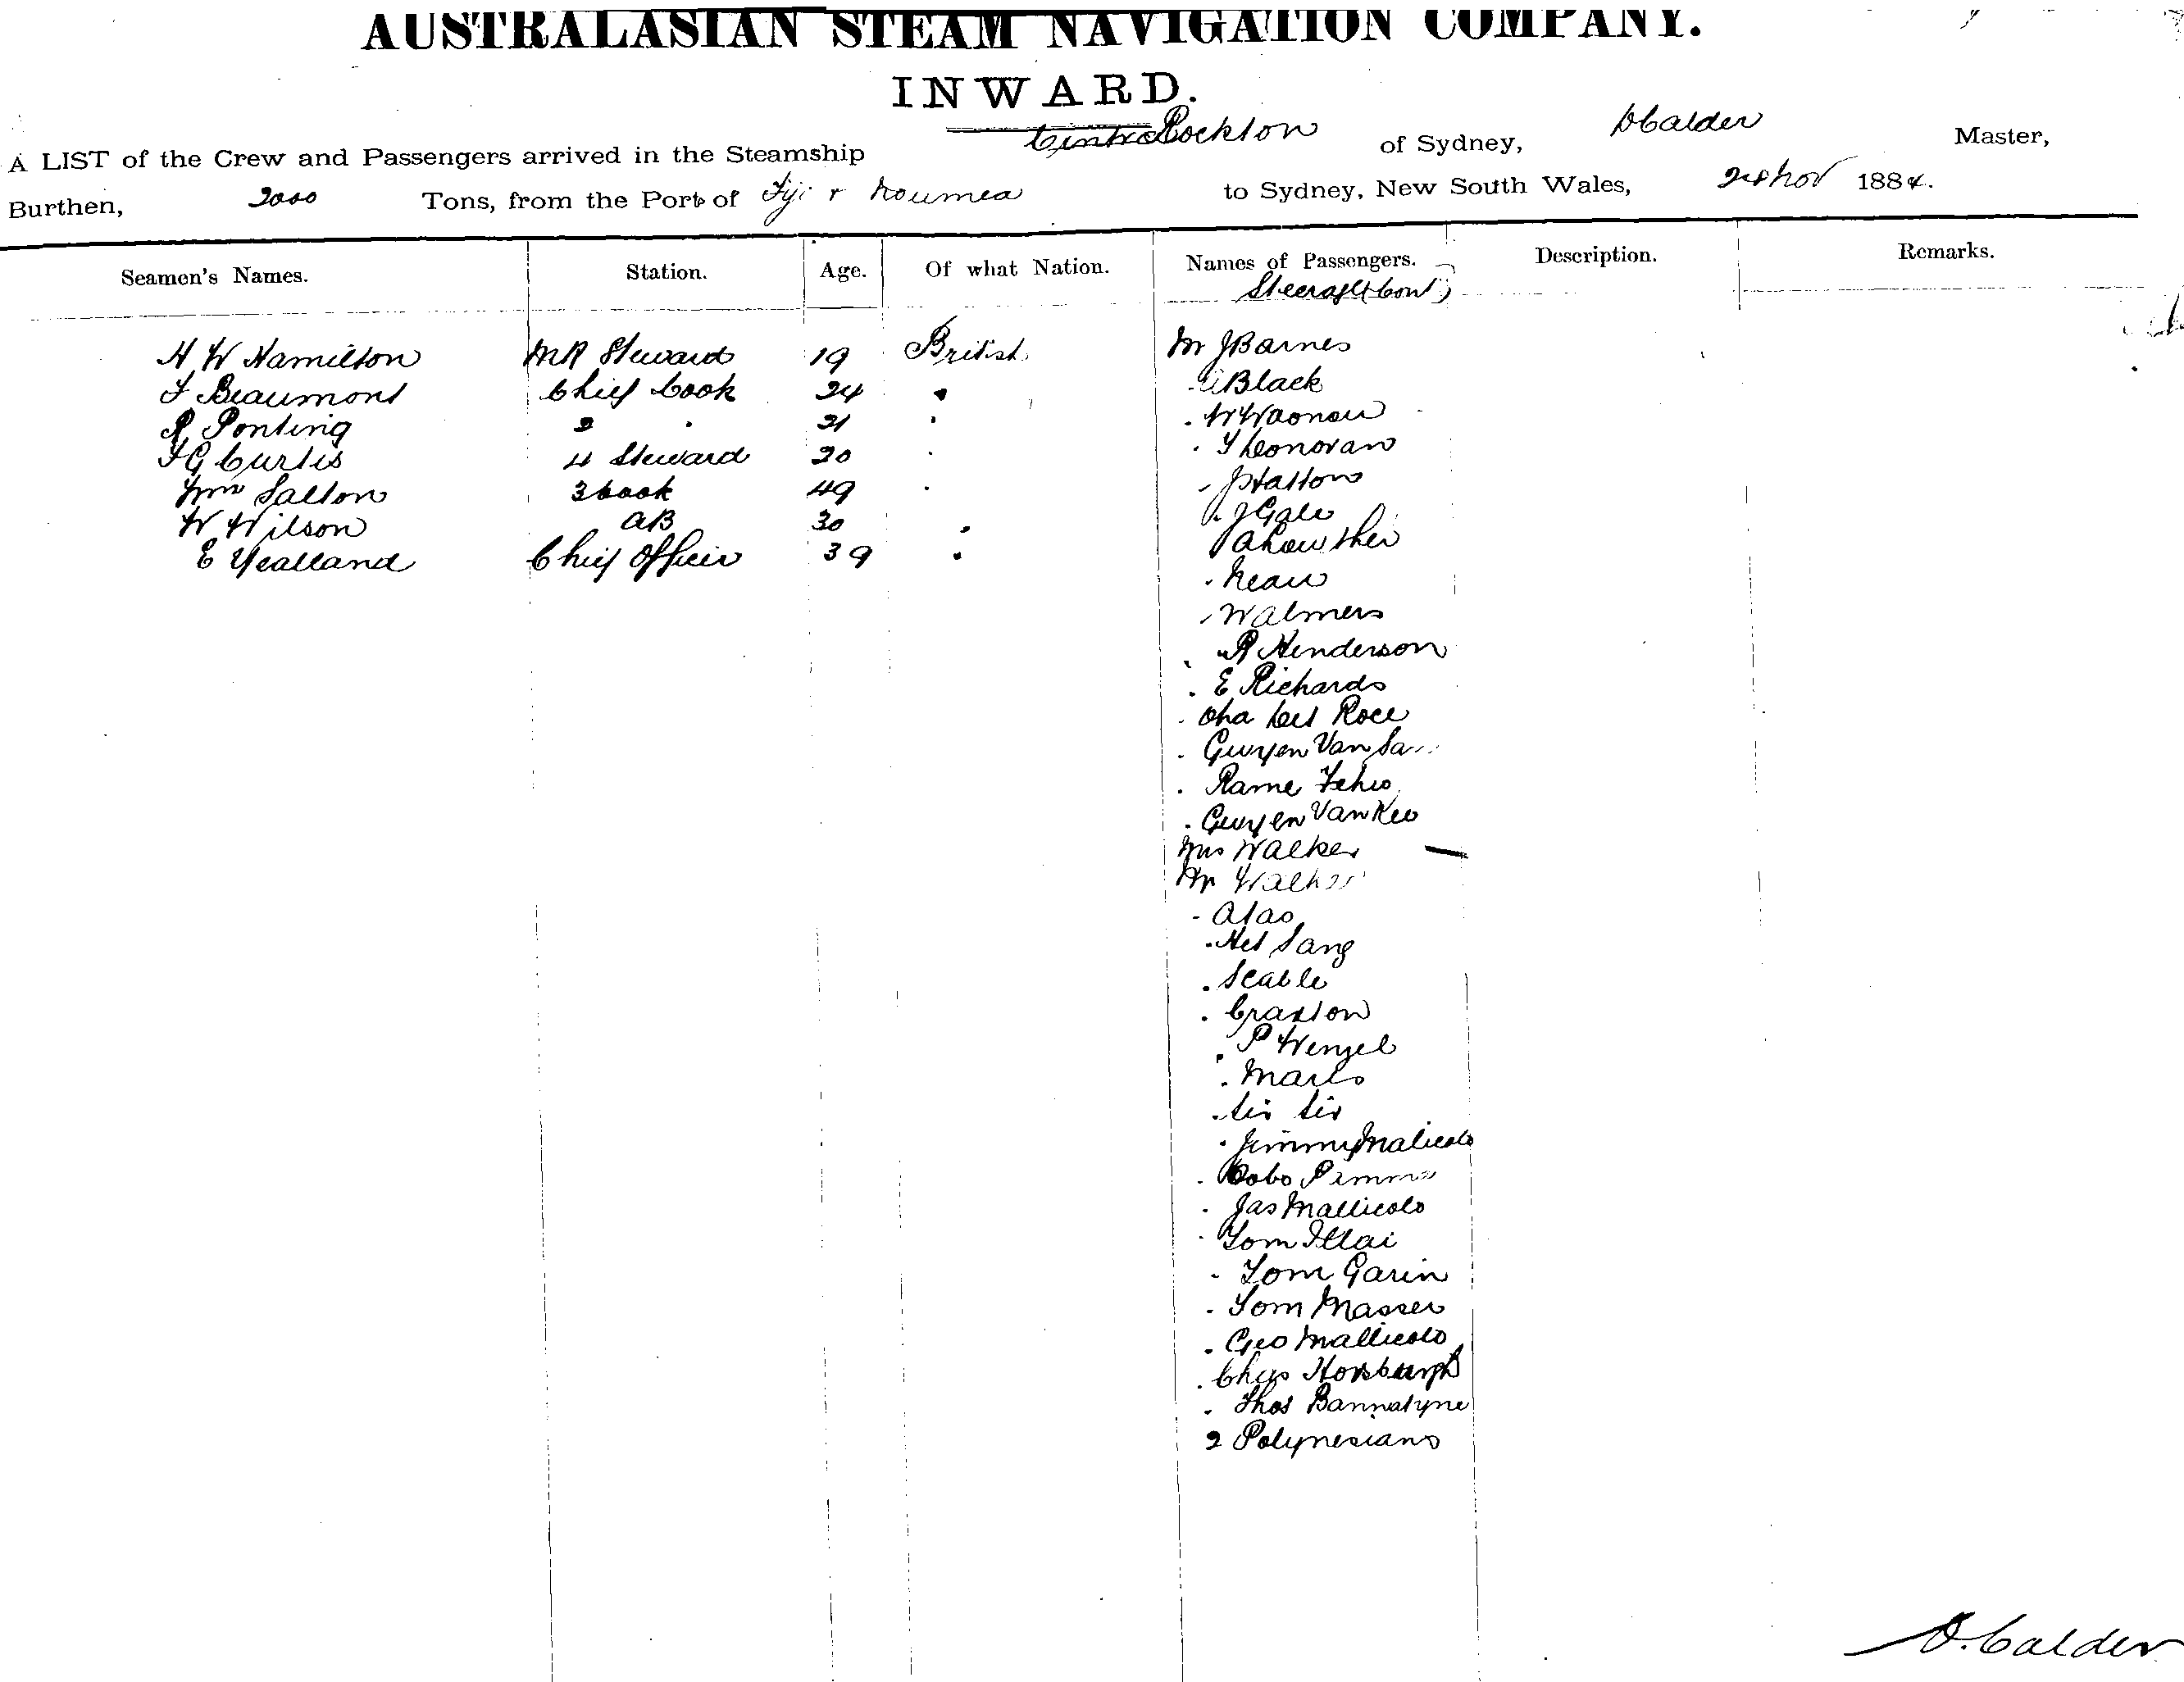 AUSTRALASIAN STEAM NAVIGATION COMPANY.
INWARD.
A LIST of the Crew and Passengers arrived in the Steamship Cintra Rockton of Sydney, D Calder Master,
Burthen, 2000 Tons, from the Port of Fiji & Noumea to Sydney, New South Wales, Nov 1884.
Seamen's Names. Station. Age. Of what Nation. Names of Passengers. Description. Remarks.
Steerage (Cont)
H W Hamilton MR Steward 19 British Mr J Barnes
F Beaumont Chief Cook 24 " Black
R Ponting 2 " 21 "
F G Curtis 4 Steward 20 " Donovan
Wm Salton 3 Cook 49 " J Hatton
W Wilson AB 30 " J Gale
E Yealland Chief Officer 39 "
Walmers
R Henderson
E Richards
Guyen Van
Rame
Guyen Van Keo
Mrs Walker
Mr Walker
Ah Sang
Scable
Craxton
P Wenzel
Jimmy Malicolo
Bobo
Jas Mallicolo
Tom Illai
Tom Garin
Tom Masser
Geo Mallicolo
Chas Horsburgh
Thos Bannatyne
2 Polynesians
D. Calder